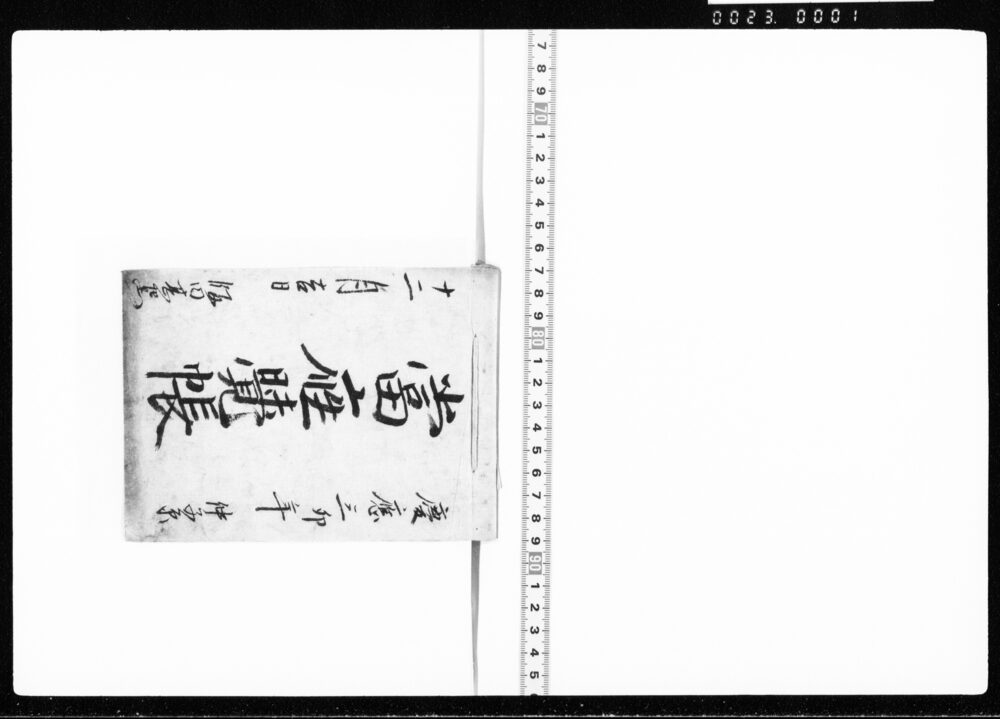 0023. 0001
慶應三卯年
當座覺帳
十二月吉日
7 8 9 70 1 2 3 4 5 6 7 8 9 80 1 2 3 4 5 6 7 8 9 90 1 2 3 4 5